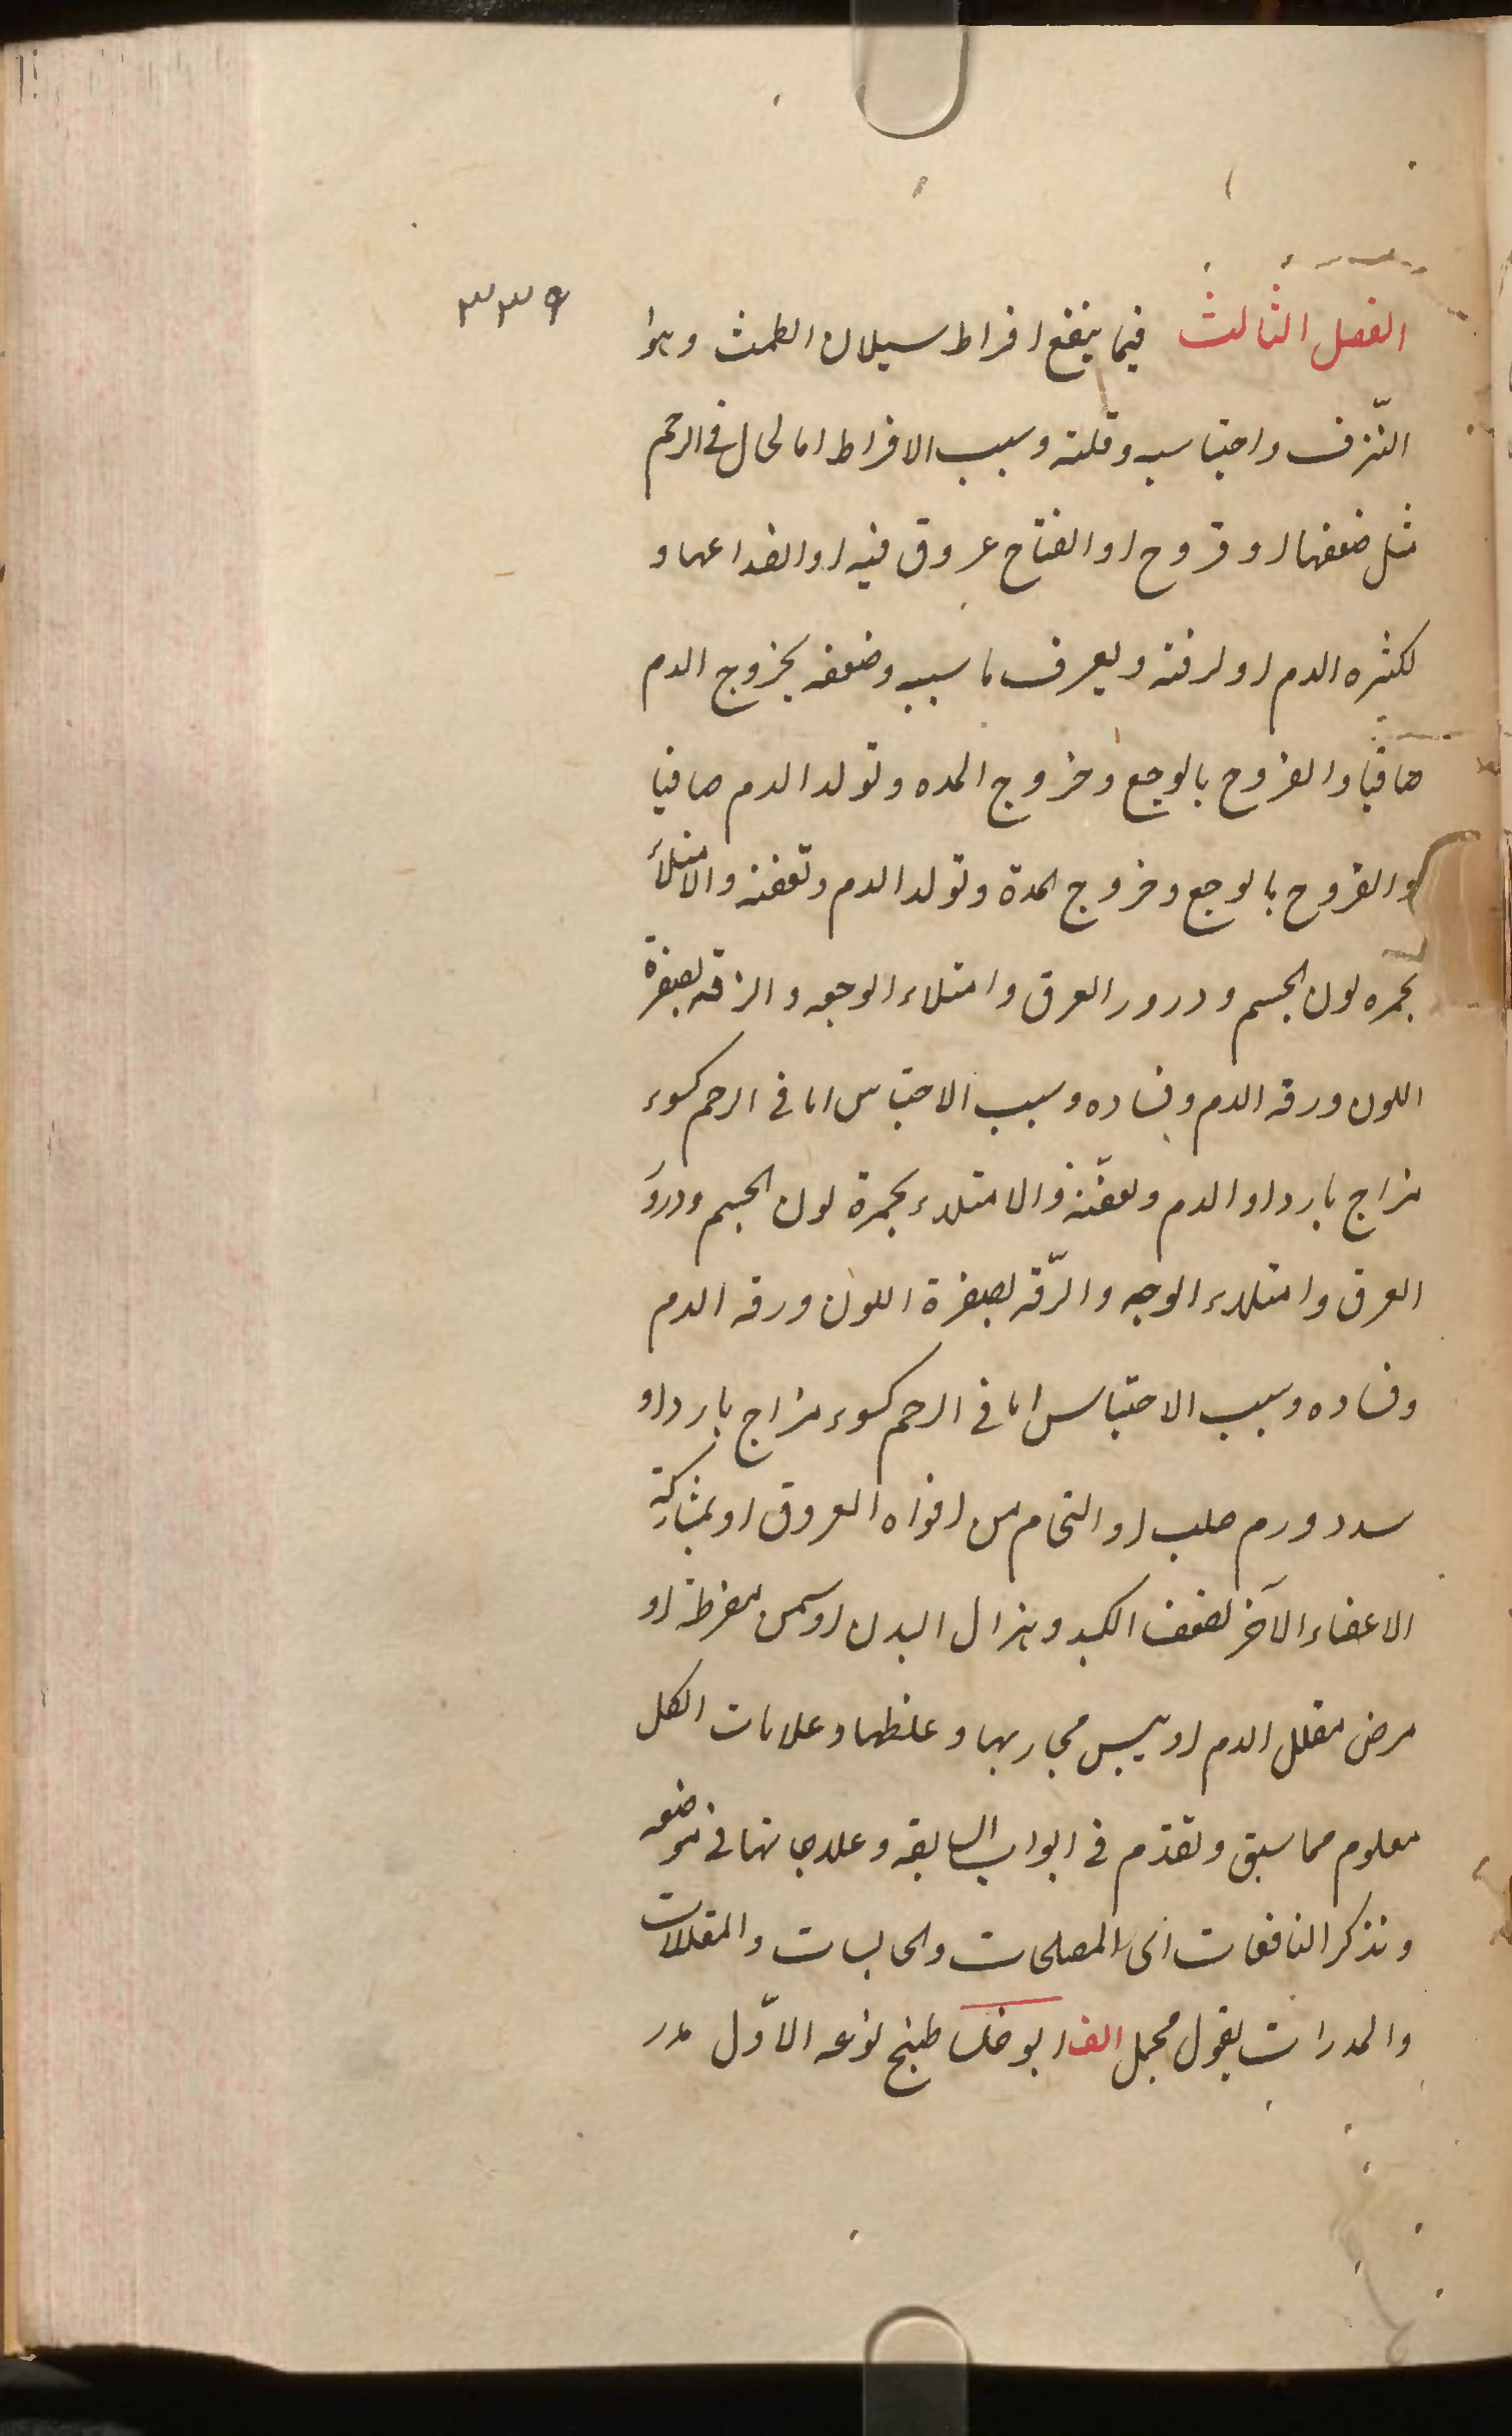 ٣٣٩
الفصل الثالث فیما ینفع افراط سیلان الطمث وهوا
النّزف واحتباسه وقلته وسبب الافراط اما لحال فی الرحم
مثل ضعفها او قروح او انفتاح عروق فیه او انصداعها و
لکثره الدم او لرقته ویعرف ما سببه وضعفه بخروج الدم
صافیا والقروح بالوجع وخروج المده وتولد الدم صافیا
والقروح بالوجع وخروج المدة وتولد الدم وتعفنه والامتلاء
بحمره لون الجسم ودرور العرق وامتلاء الوجه والرقه بصفرة
اللون ورقه الدم وفساده وسبب الاحتباس اما فی الرحم کسوء
مزاج بارد او الدم وتعفّنه والامتلاء بحمرة لون الجسم ودرور
العرق وامتلاء الوجه والرّقه بصفرة اللون ورقه الدم
وفساده وسبب الاحتباس اما فی الرحم کسوء مزاج بارد او
سدد ورم صلب او التحام من افواه العروق او بمشارکة
الاعضاء الآخر لضعف الکبد وهزال البدن او سمن مفرطة او
مرض مقلل الدم او یبس مجاریها وغلظها وعلامات الکل
معلوم مما سبق وتقدّم فی ابواب السابقه وعلاجاتها فی موضعه
ونذکر النافعات ای المصلحات والحابسات والمقللات
والمدرات بقول مجمل الف ابو طبخ نوعه الاوّل مدر